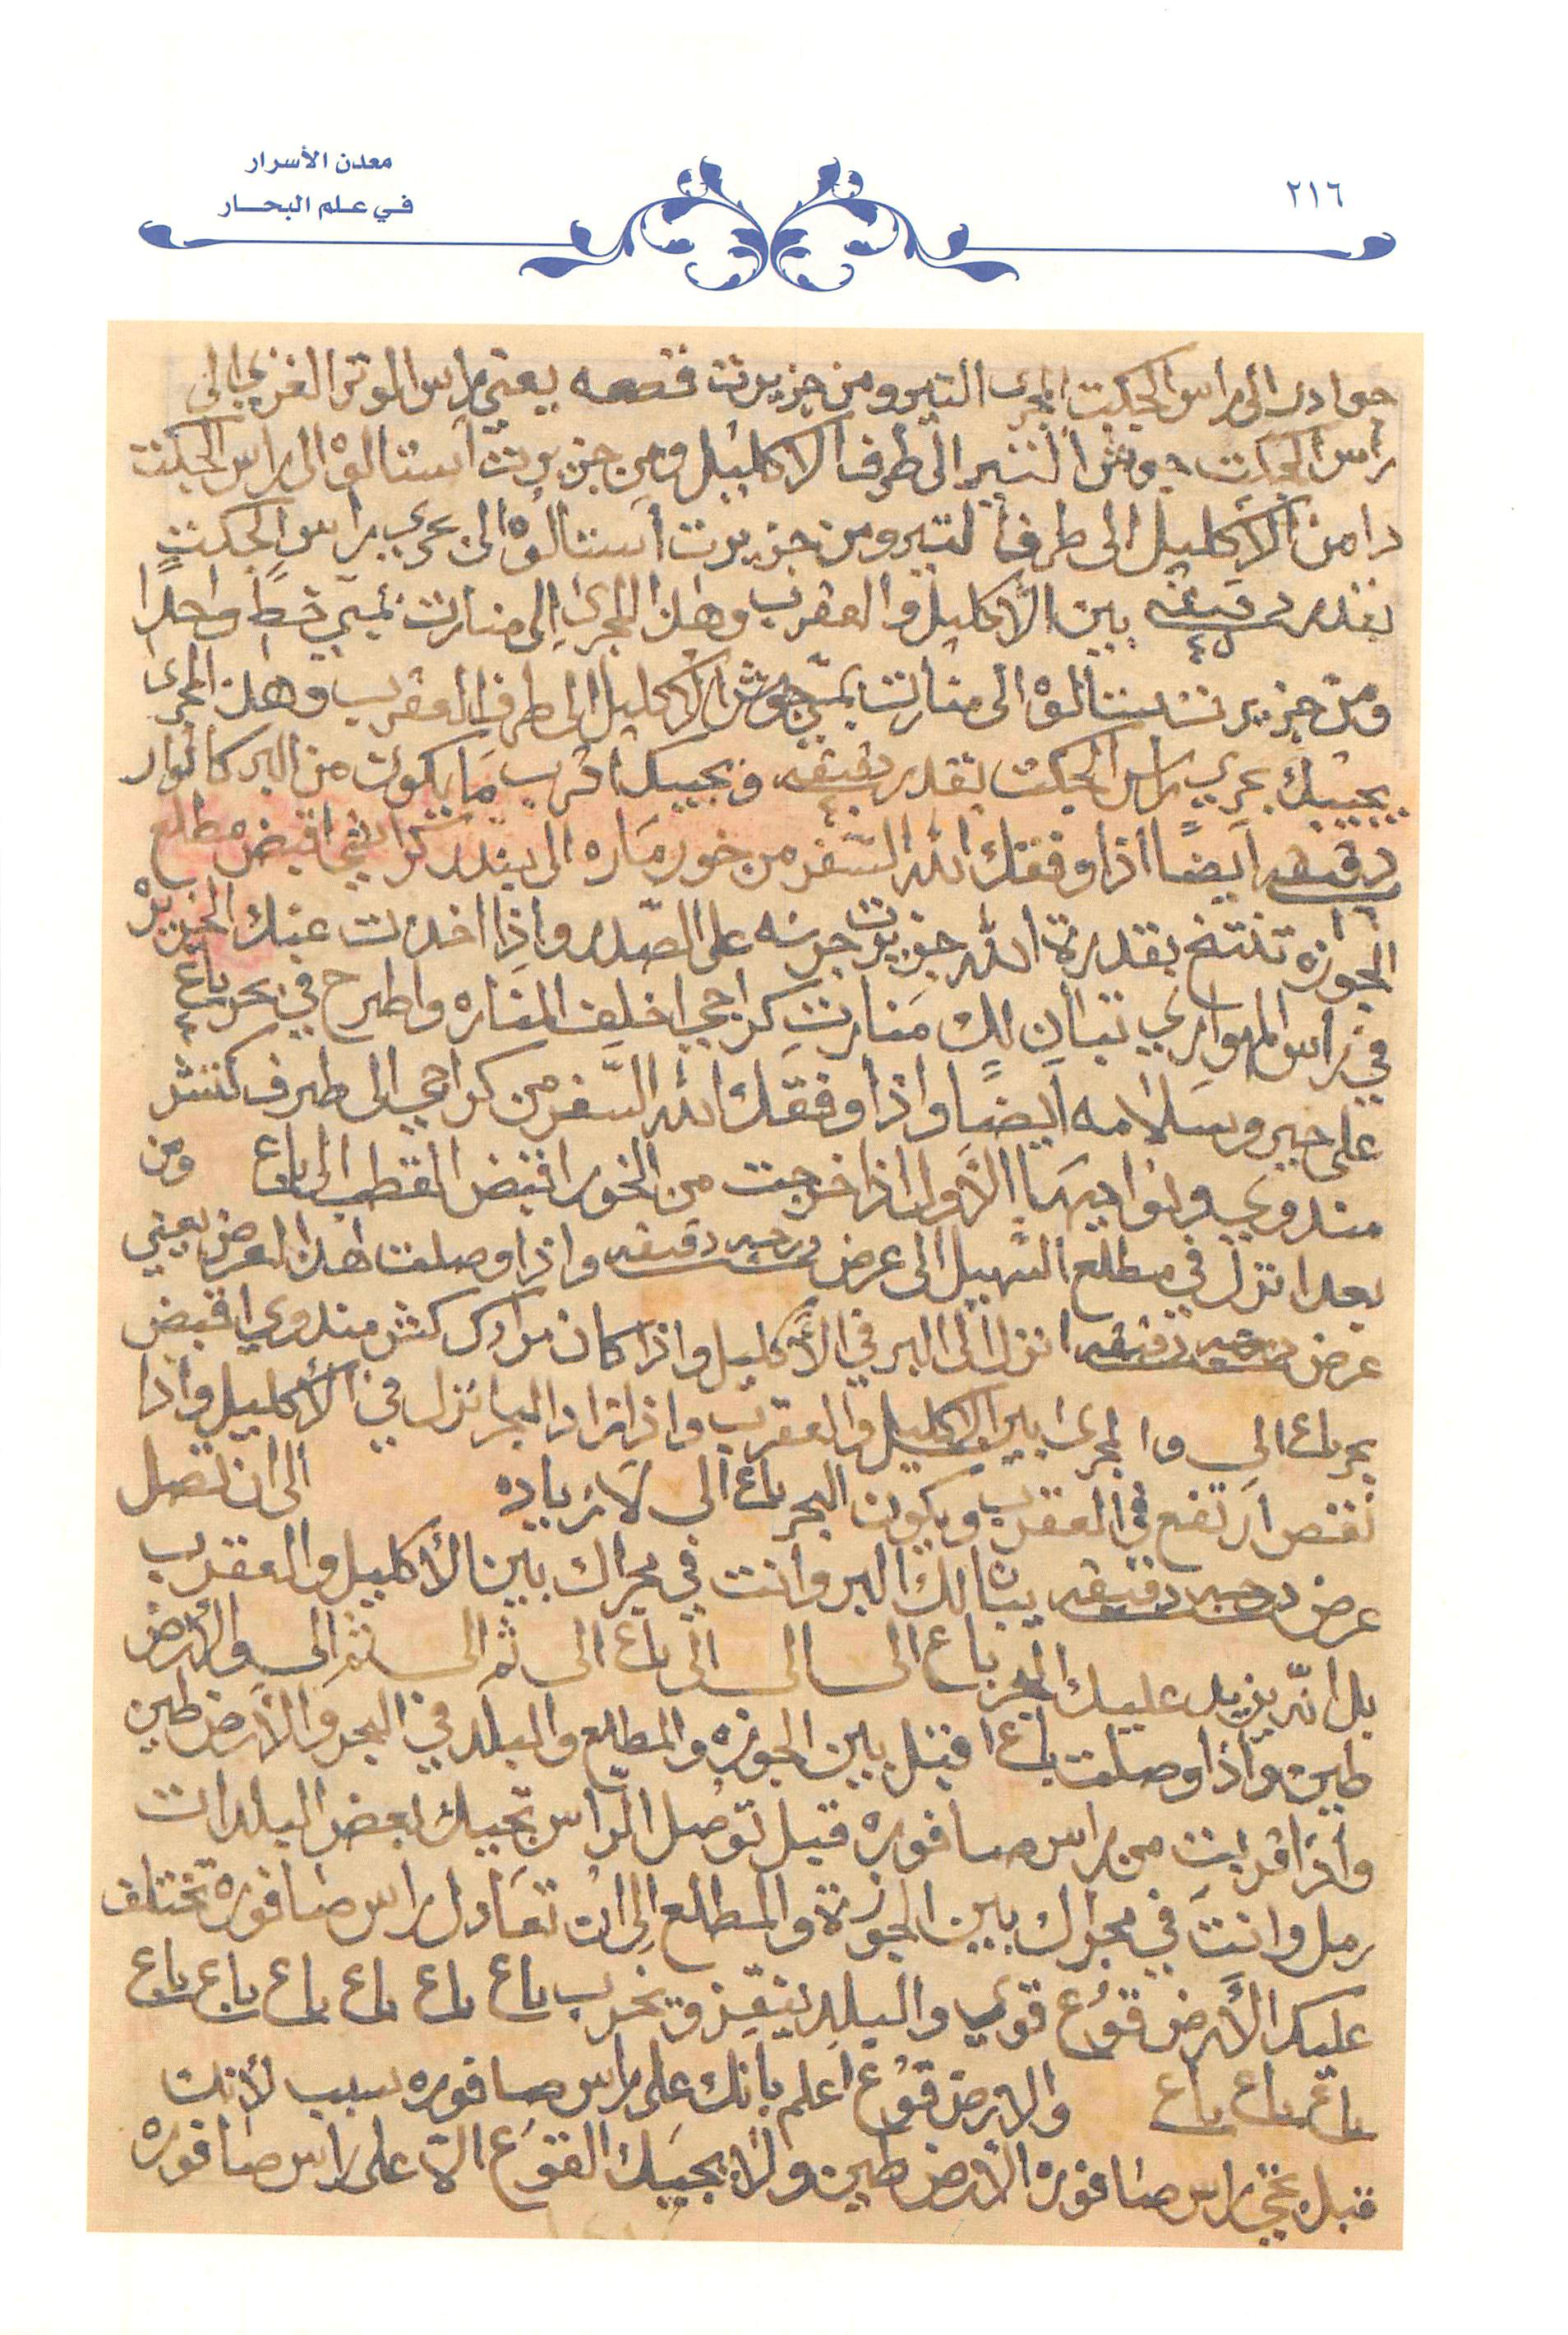 معدن الأسرار
في علم البحار
٢١٦
جوادر الى راس الجكت المجرى التير ومن جزيرت قصعه يعني راس الموتر الغربي الى
راس الجكت جوش التير الى طرف الاكليل ومن جزيرت استالوه الى راس الجكت
دامن الاكليل الى طرف التير ومن جزيرت استالوه الى بحري راس الجكت
بقدر دقيقه ٤٥ بين الاكليل والعقرب وهذا المجرى الى منارت بمبي خط واحد
ومن جزيرت ستالوه الى منارت بمبي جوش الاكليل الى طرف العقرب وهذا المجرى
يجيبك بحري راس الجكت بقدر دقيقه ٤٠ ويجيبك اقرب ما يكون من البر كانوار
دقيقه ١٦ ايضا اذا وفقك الله السفر من خور مياره الى بندر كراتجي اقبض مطلع
الجوزه تنتخ بقدرة الله جزيرت جرنه على الصدر واذا اخذت عنك الجزيره
في راس المهواري تبان لك منارت كراجي اخلف المناره واطرح في بحر باع ٤
على خير وسلامه ايضا واذا وفقك الله السفر من كراجي الى طرف كنش
مندوي ونواديها الاول اذا خرجت من الخور اقبض القطب الى باع ومن
بعد انزل في مطلع السهيل الى عرض درجه دقيقه واذا وصلت هذا العرض يعني
عرض درجه دقيقه انزل الى البر في الاكليل واذا كان مرادك كنش مندوي اقبض
بحر باع الى والمجرى بين الاكليل والعقرب واذا زاد البحر انزل في الأكليل واذا
نقص ارتفع في العقرب ويكون البحر باع الى لا زياده الى ان تصل
عرض درجه دقيقه يبالك البر وانت في مجراك بين الأكليل والعقرب
بل انه يزيد عليك البحر باع الى الى الى باع الى ثم الى ثم الى والارض
طين واذا وصلت باع اقبل بين الجوزه والمطلع والبلد في البحر والارض طين
واذا قربت من راس صافوره قبل توصل الراس تجيبك بعض البلدات
رمل وانت في مجراك بين الجوزة والمطلع الى ان تعادل راس صافوره تختلف
عليك الأرض قوع قوي والبلد ينقز ويخرب باع باع باع باع باع باع
باع باع باع والارض قوع اعلم بانك على راس صافوره سبب لأنك
قبل تجي راس صافوره الأرض طين ولا يجيبك القوع الا على راس صافوره